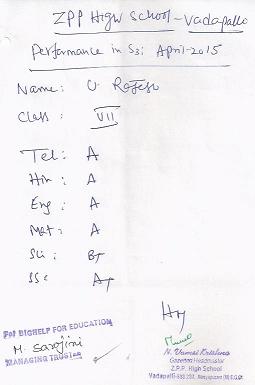 ZPP High School - Vadapally
Performance in S3: April-2015
Name: U. Rajesh
Class: VII
Tel: A
Hin: A
Eng: A
Mat: A
Sci: B+
SSC A+
For BIGHELP FOR EDUCATION
M. Sarojini
MANAGING TRUSTEE
HM
N. Vamsi Krishna
Gazetted Headmaster
Z.P.P. High School